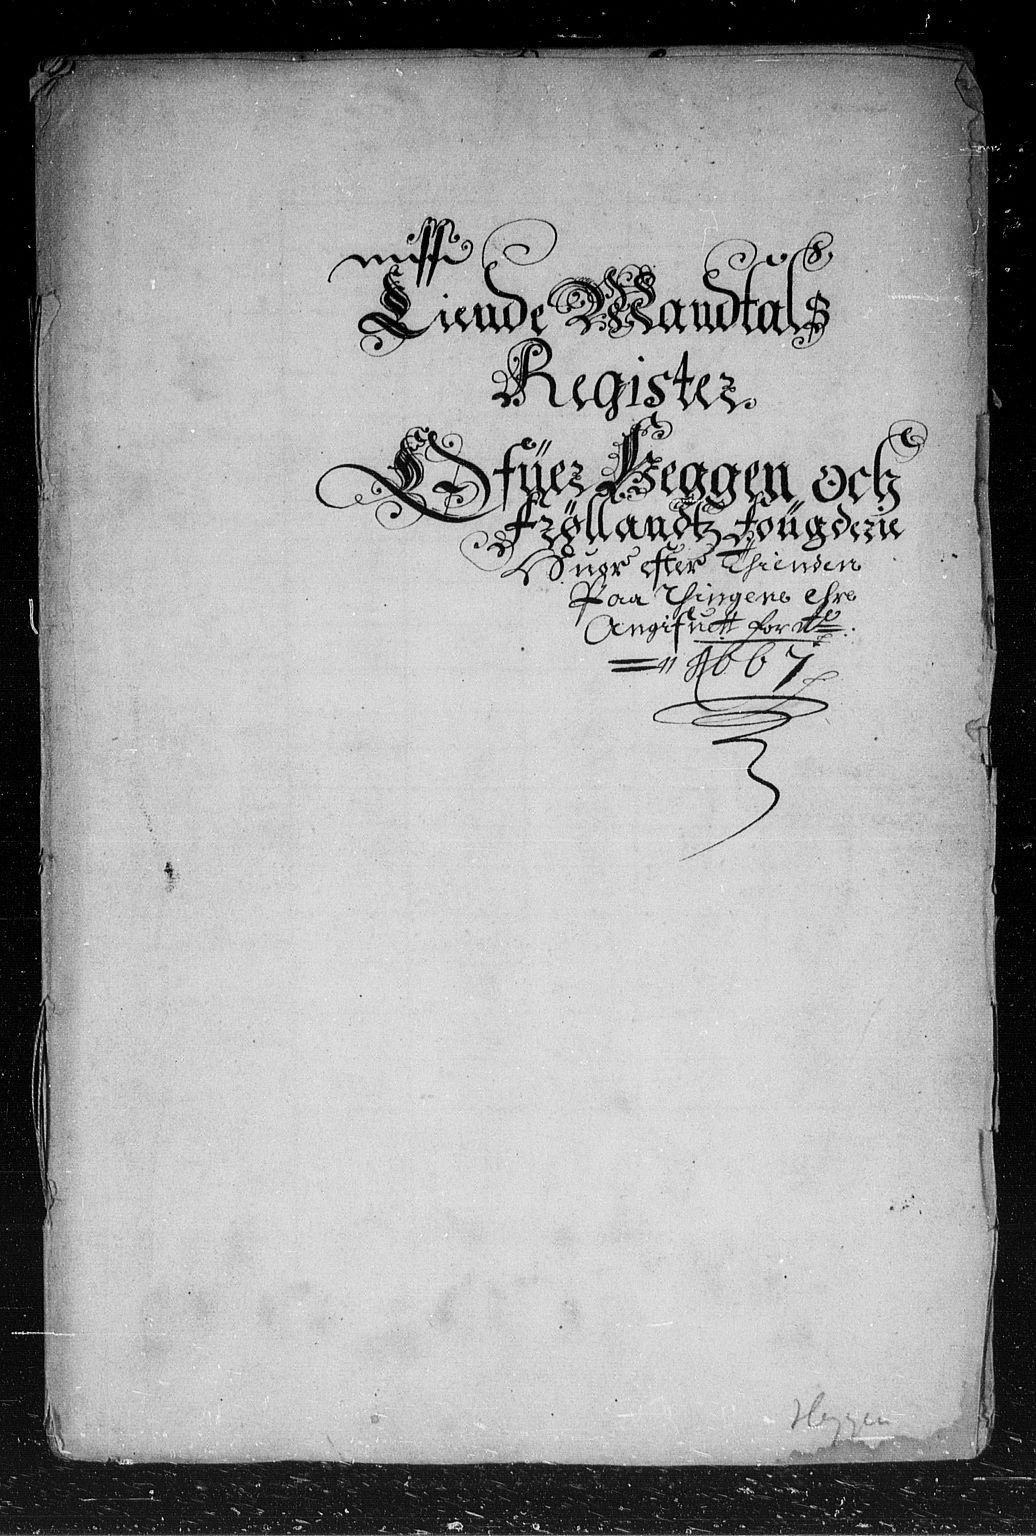 Tiende Mandtals
Register
Ofüer Heggen och
Frøllandtz fougderie
Huor efter Thienden
Paa Thingene ehre
Angifuett for Ao
1667
Heggen